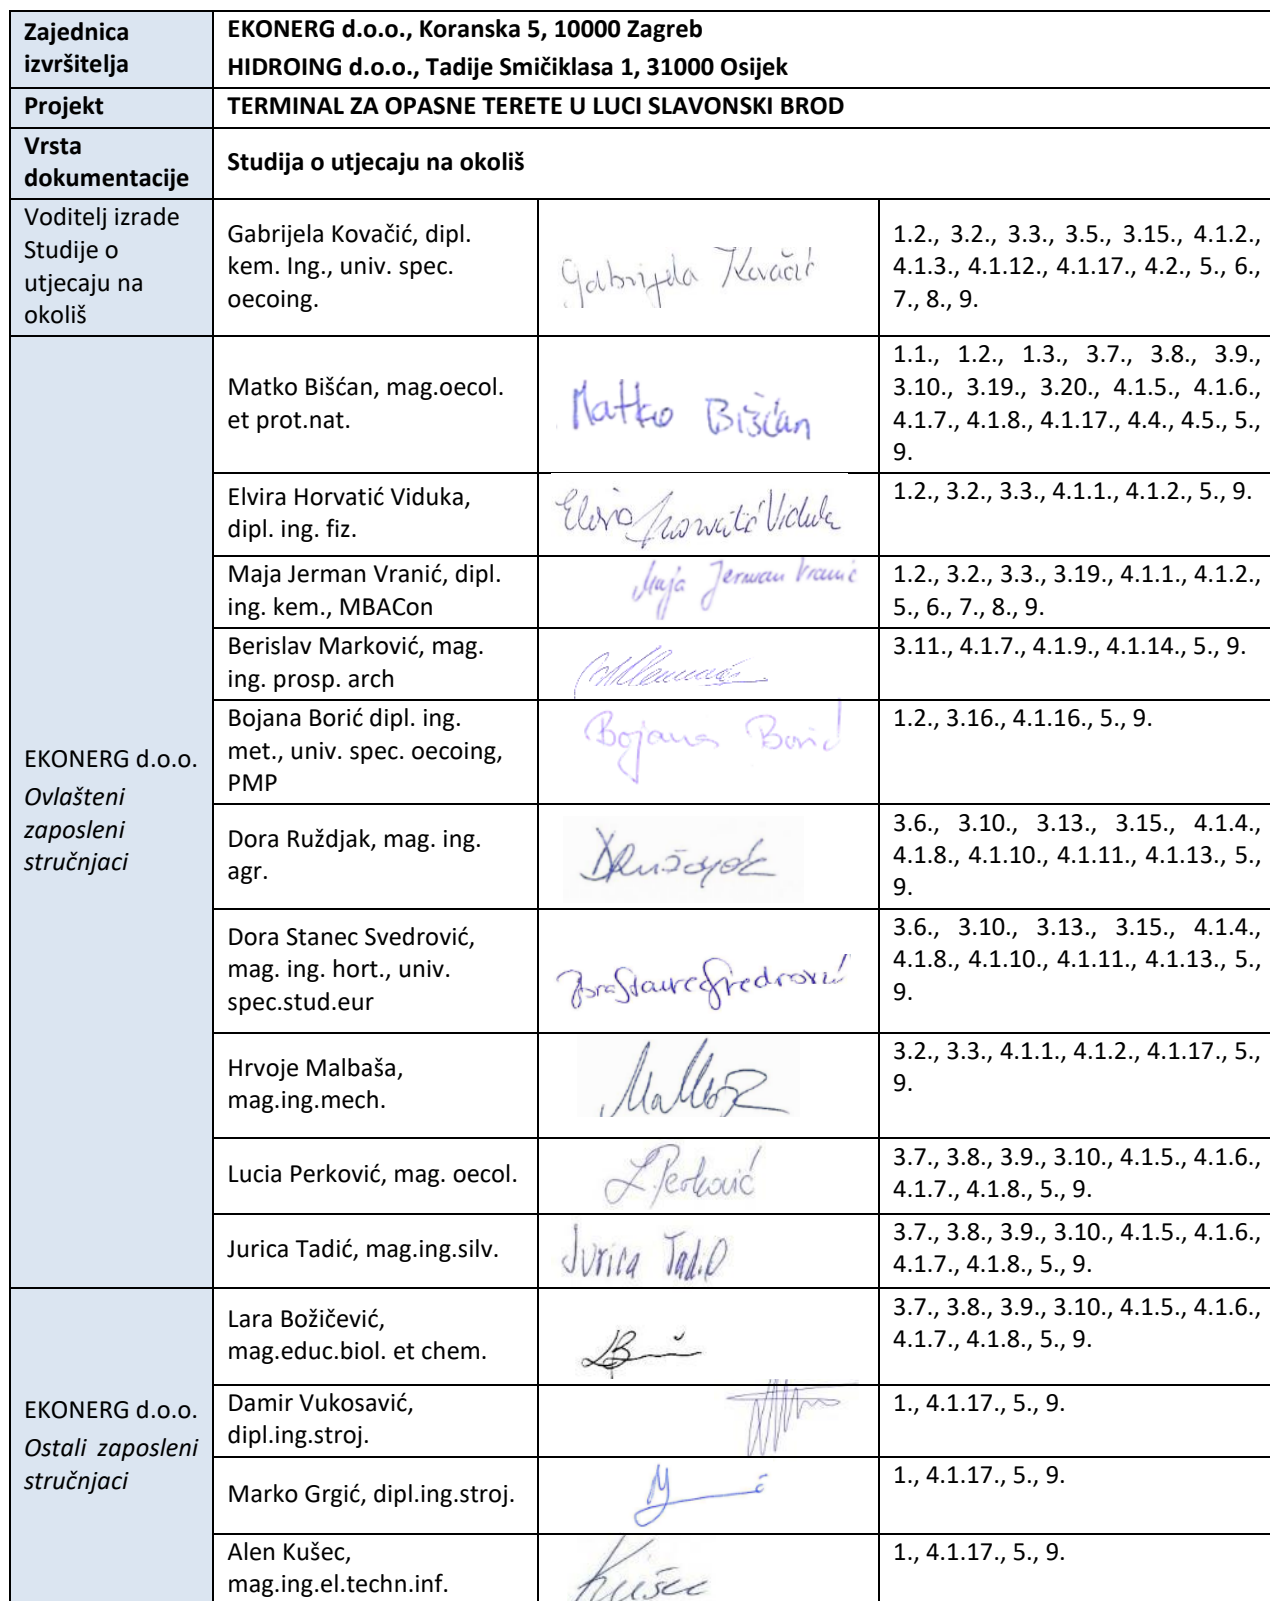 Zajednica
izvršitelja
EKONERG d.o.o., Koranska 5, 10000 Zagreb
HIDROING d.o.o., Tadije Smičiklasa 1, 31000 Osijek
Projekt
TERMINAL ZA OPASNE TERETE U LUCI SLAVONSKI BROD
Vrsta
dokumentacije
Studija o utjecaju na okoliš
Voditelj izrade
Studije o
utjecaju na
okoliš
Gabrijela Kovačić, dipl.
kem. Ing., univ. spec.
oecoing.
Gabrijela Kovačić
1.2., 3.2., 3.3., 3.5., 3.15., 4.1.2.,
4.1.3., 4.1.12., 4.1.17., 4.2., 5., 6.,
7., 8., 9.
EKONERG d.o.o.
Ovlašteni
zaposleni
stručnjaci
Matko Bišćan, mag.oecol.
et prot.nat.
Matko Bišćan
1.1., 1.2., 1.3., 3.7., 3.8., 3.9.,
3.10., 3.19., 3.20., 4.1.5., 4.1.6.,
4.1.7., 4.1.8., 4.1.17., 4.4., 4.5., 5.,
9.
Elvira Horvatić Viduka,
dipl. ing. fiz.
Elvira Horvatić Viduka
1.2., 3.2., 3.3., 4.1.1., 4.1.2., 5., 9.
Maja Jerman Vranić, dipl.
ing. kem., MBACon
Maja Jerman Vranić
1.2., 3.2., 3.3., 3.19., 4.1.1., 4.1.2.,
5., 6., 7., 8., 9.
Berislav Marković, mag.
ing. prosp. arch
3.11., 4.1.7., 4.1.9., 4.1.14., 5., 9.
Bojana Borić dipl. ing.
met., univ. spec. oecoing,
PMP
Bojana Borić
1.2., 3.16., 4.1.16., 5., 9.
Dora Ruždjak, mag. ing.
agr.
3.6., 3.10., 3.13., 3.15., 4.1.4.,
4.1.8., 4.1.10., 4.1.11., 4.1.13., 5.,
9.
Dora Stanec Svedrović,
mag. ing. hort., univ.
spec.stud.eur
Dora Stanec Svedrović
3.6., 3.10., 3.13., 3.15., 4.1.4.,
4.1.8., 4.1.10., 4.1.11., 4.1.13., 5.,
9.
Hrvoje Malbaša,
mag.ing.mech.
3.2., 3.3., 4.1.1., 4.1.2., 4.1.17., 5.,
9.
Lucia Perković, mag. oecol.
L Perković
3.7., 3.8., 3.9., 3.10., 4.1.5., 4.1.6.,
4.1.7., 4.1.8., 5., 9.
Jurica Tadić, mag.ing.silv.
Jurica Tadić
3.7., 3.8., 3.9., 3.10., 4.1.5., 4.1.6.,
4.1.7., 4.1.8., 5., 9.
EKONERG d.o.o.
Ostali zaposleni
stručnjaci
Lara Božičević,
mag.educ.biol. et chem.
3.7., 3.8., 3.9., 3.10., 4.1.5., 4.1.6.,
4.1.7., 4.1.8., 5., 9.
Damir Vukosavić,
dipl.ing.stroj.
1., 4.1.17., 5., 9.
Marko Grgić, dipl.ing.stroj.
1., 4.1.17., 5., 9.
Alen Kušec,
mag.ing.el.techn.inf.
Kušec
1., 4.1.17., 5., 9.